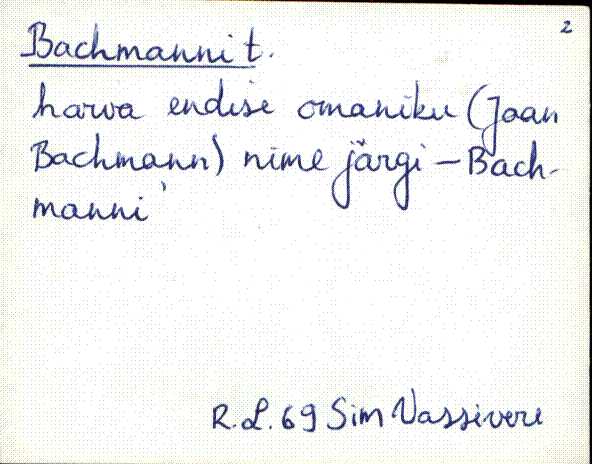 2
Bachmanni t.
harva endise omaniku (Jaan
Bachmann) nime järgi – Bach-
manni'
R.L. 69 Sim Vassivere